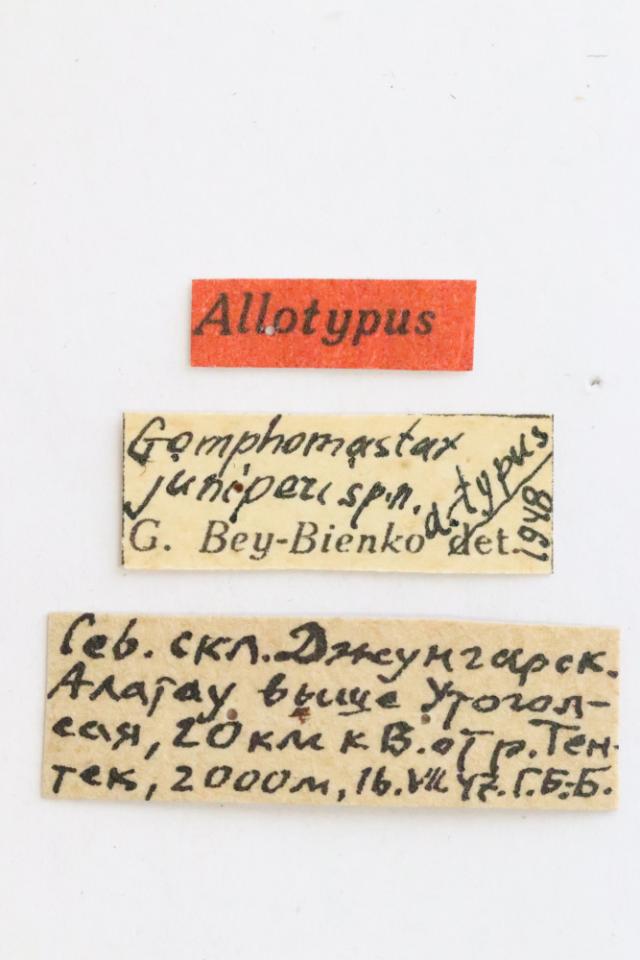 Allotypus
Gomphomastax
juniperi sp.n. a.typus
G. Bey-Bienko det. 1948
Сев. скл. Джунгарск.
Алатау выше Утогол-
сая, 20 км к В. от р. Тен-
тек, 2000 м, 16.VII 47. Г.Б-Б.